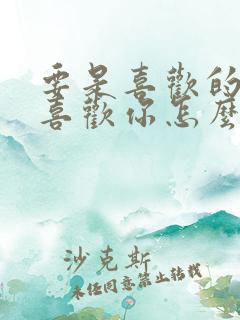 要是喜歡的
喜歡你怎麼
沙克斯
未任同意禁止转载